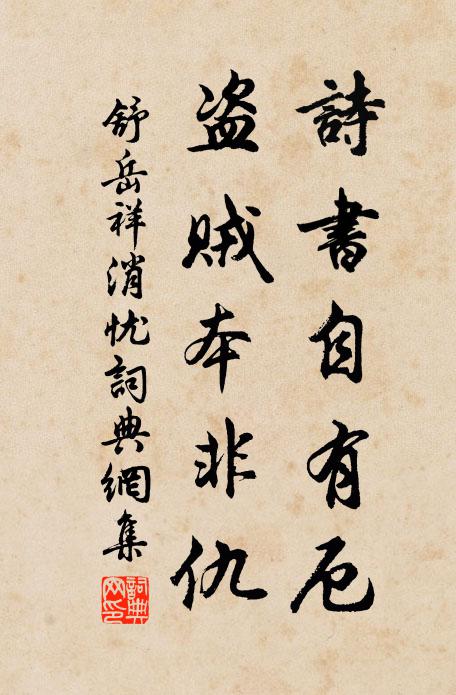 詩書自有厄
盗賊本非仇
舒岳祥消忧詞典網集
詞典
网印